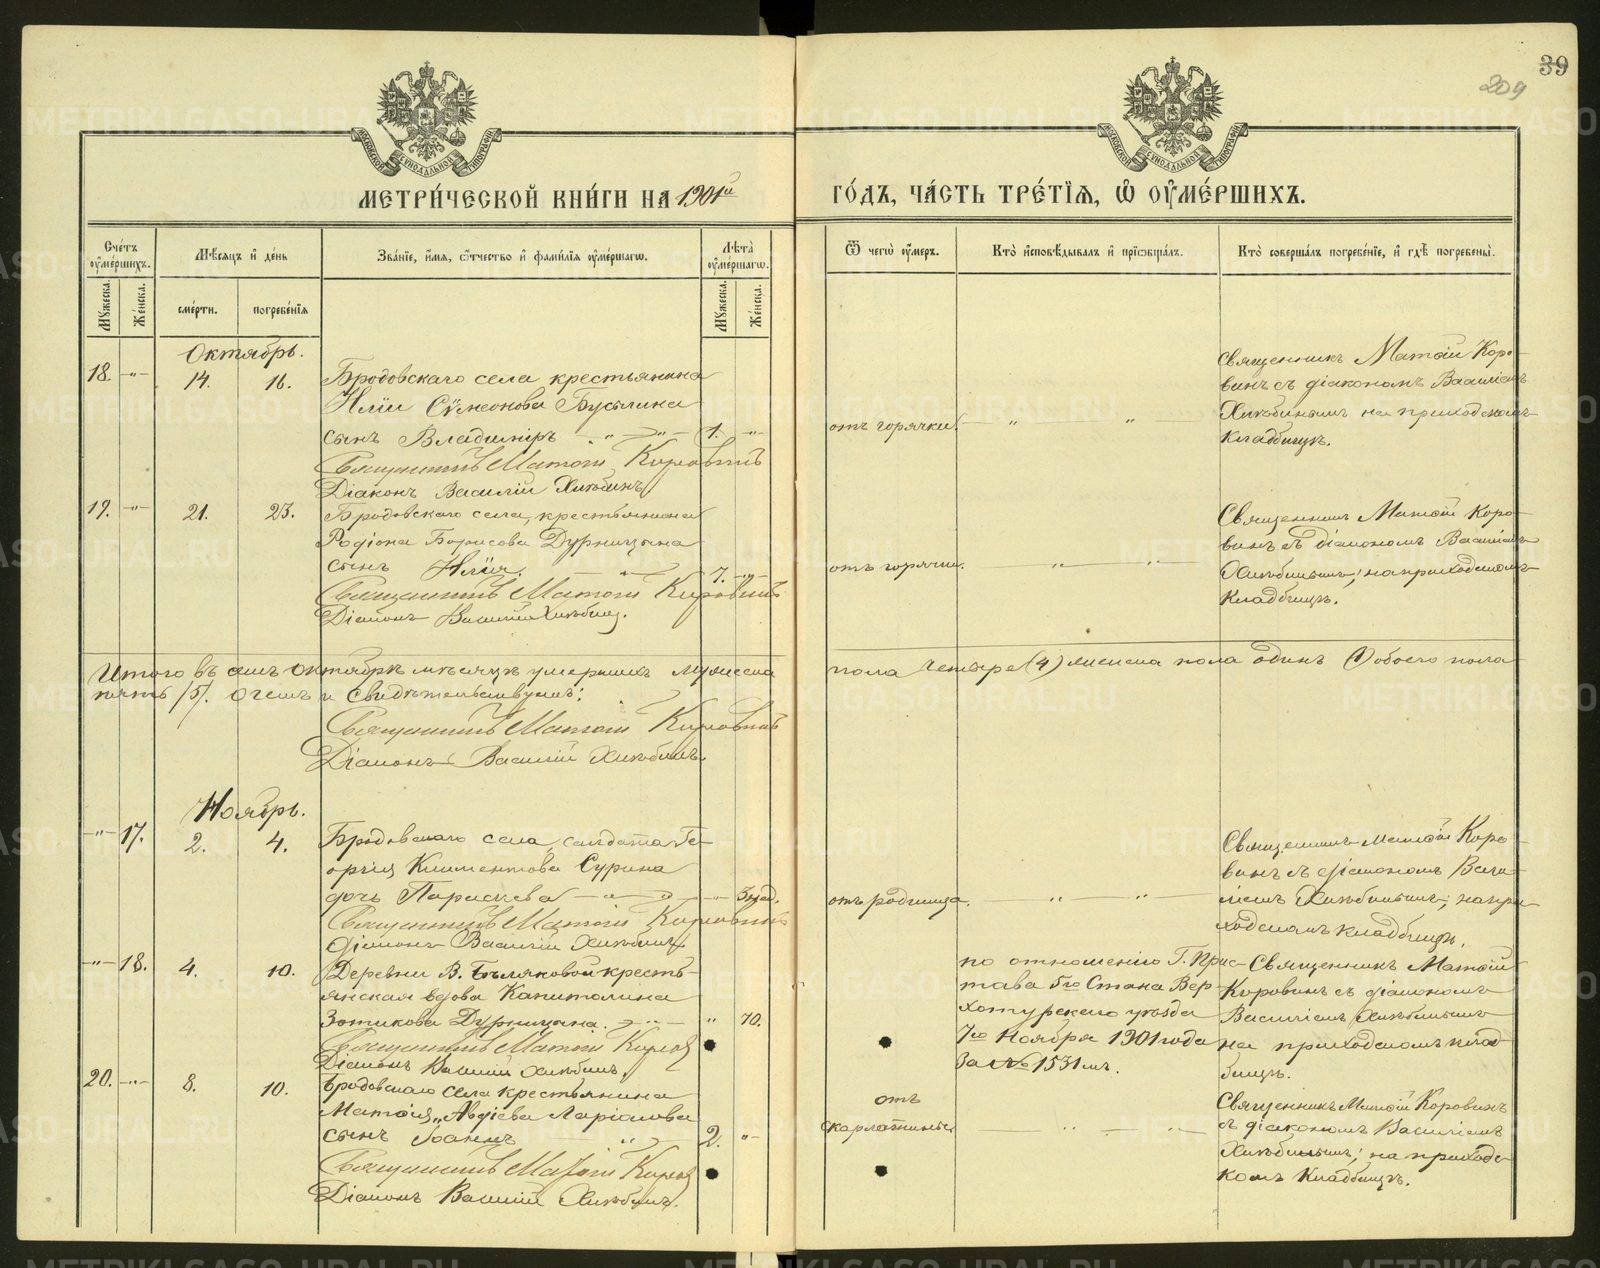 39
209
МЕТРИ́ЧЕСКОЙ КНИ́ГИ НА 1901й ГО́ДЪ, ЧА́СТЬ ТРЕ́ТЇѦ, Ѡ҆ ОУ҆МЕ́РШИХЪ.
Сче́тъ оу҆ме́ршихъ.
Мѣ́сѧцъ и҆ де́нь
Зва́нїе, и҆́мѧ, ѻ҆́тчество и҆ фами́лїѧ оу҆ме́ршагѡ.
Лѣ́та оу҆ме́ршагѡ.
Ѿ чегѡ̀ оу҆́меръ.
Кто̀ и҆сповѣ́дывалъ и҆ прїѡбща́лъ.
Кто̀ соверша́лъ погребе́нїе, и҆ гдѣ̀ погребены̀.
Мꙋ́жеска.
Же́нска.
сме́рти.
погребе́нїѧ
Мꙋ́жеска.
Же́нска.
Октябрь.
18. -"- 14. 16.
Бродовскаго села крестьянина
Иліи Сѵмеонова Бусыгина
сынъ Владимiръ 1. -"-
Священникъ Матѳiй Коровинъ
Дiаконъ Василiй Хлѣбинъ
отъ горячки.
Священникъ Матѳiй Коро-
винъ съ дiакономъ Василiемъ
Хлѣбинымъ на приходскомъ
кладбищѣ.
19. -"- 21. 23.
Бродовскаго села, крестьянина
Родiона Борисова Дурницына
сынъ Илiя. 7. -"-
Священникъ Матѳiй Коровинъ
Дiаконъ Василiй Хлѣбинъ.
отъ горячки.
Священникъ Матѳiй Коро-
винъ съ дiакономъ Василiемъ
Хлѣбинымъ; на приходскомъ
кладбищѣ.
Итого въ семъ Октябрѣ мѣсяцѣ умершихъ мужеска пола четыре (4) женска пола одинъ (1) обоего пола
пять (5). О чемъ и свидѣтельствуемъ:
Священникъ Матѳiй Коровинъ
Дiаконъ Василiй Хлѣбинъ.
Ноябрь.
-"- 17. 2. 4.
Бродовскаго села, солдата Ге-
оргiя Климентова Сурина
дочь Параскева -"- 3 нед.
Священникъ Матѳiй Коровинъ
Дiаконъ Василiй Хлѣбинъ
отъ родимца.
Священникъ Матѳiй Коро-
винъ съ дiакономъ Васи-
лiемъ Хлѣбинымъ; на при-
ходскомъ кладбищѣ.
-"- 18. 4. 10.
Деревни В. Бѣляковой кресть-
янская вдова Капитолина
Зотикова Дурницына. " 70.
Священникъ Матѳiй Коров
Дiаконъ Василiй Хлѣбинъ.
по отношенiю Г. Прис-
тава 5го Стана Вер-
хотурскаго уѣзда
7го Ноября 1901 года
за № 1531мъ.
Священникъ Матѳiй
Коровинъ съ дiакономъ
Василiемъ Хлѣбинымъ
на приходскомъ клад-
бищѣ.
20. -"- 8. 10.
Бродовскаго села крестьянина
Матѳiя Авдiева Ларiонова
сынъ Iоаннъ 2. "-
Священникъ Матѳiй Коров
Дiаконъ Василiй Хлѣбинъ.
отъ
скарлатины
Священникъ Матѳiй Коровинъ
съ дiакономъ Василiемъ
Хлѣбинымъ; на приходс-
комъ кладбищѣ.